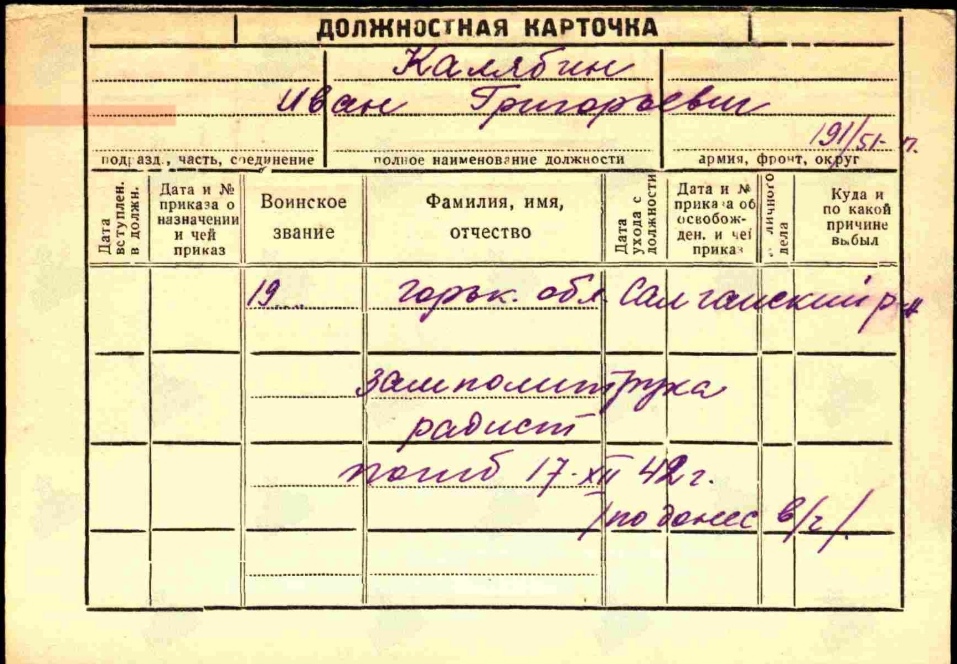 ДОЛЖНОСТНАЯ КАРТОЧКА
Калябин
Иван Григорьевич
191/51- п.
подразд., часть, соединение
полное наименование должности
армия, фронт, округ
Дата вступлен. в должн.
Дата и № приказа о назначении и чей приказ
Воинское звание
Фамилия, имя, отчество
Дата ухода с должности
Дата и № приказа об освобожден. и чей приказ
личного дела
Куда и по какой причине выбыл
19... горьк. обл. Салганский р-н
замполитрука
радист
погиб 17-XII 42 г.
/по донес в/ч/.